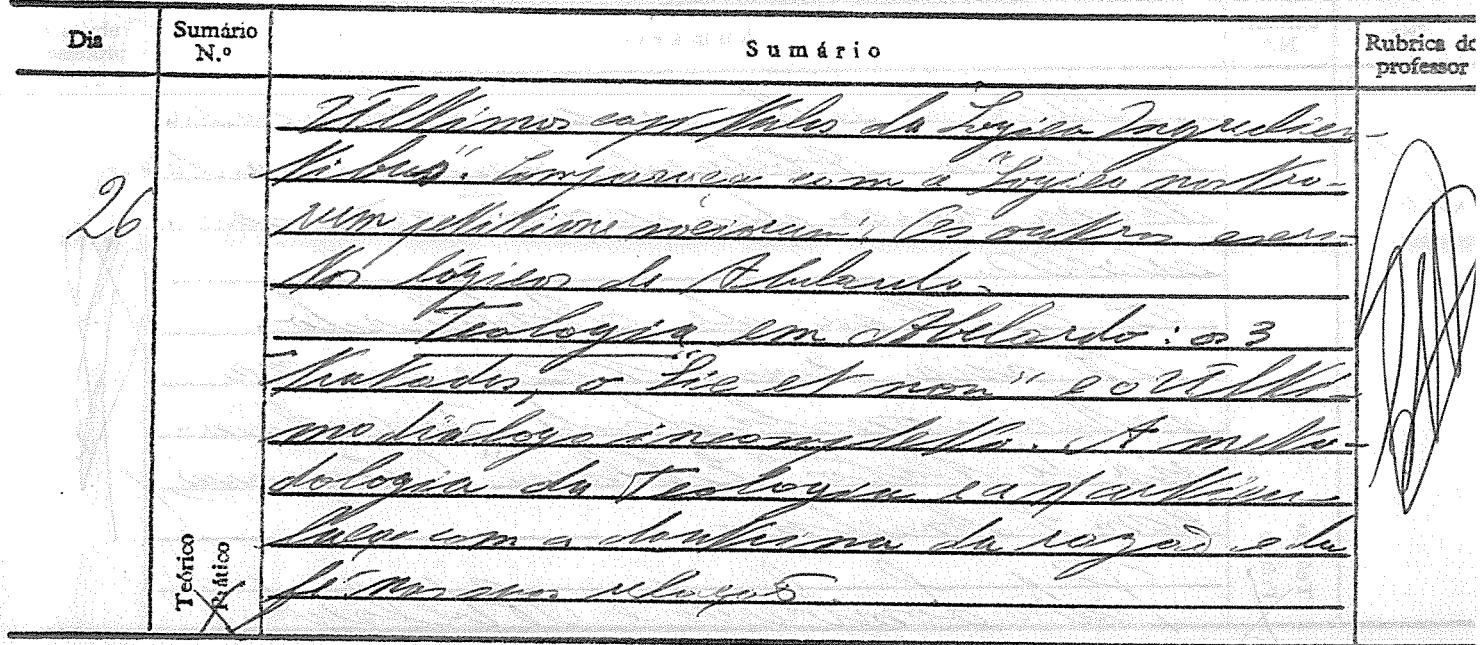 Dia
Sumário N.º
Sumário
Rubrica do professor
26
Últimos capítulos da Logica Ingredien-
tibus". Comparação com a "Logica nostro-
rum petitione sociorum". Os outros escri-
tos lógicos de Abelardo.
Teologia em Abelardo: os 3
tratados, o "Sic et non" e o últi-
mo diálogo incompleto. A meto-
dologia da Teologia e a articu-
lação com a doutrina da razão e da
fé nas suas relações.
Teórico
Prático